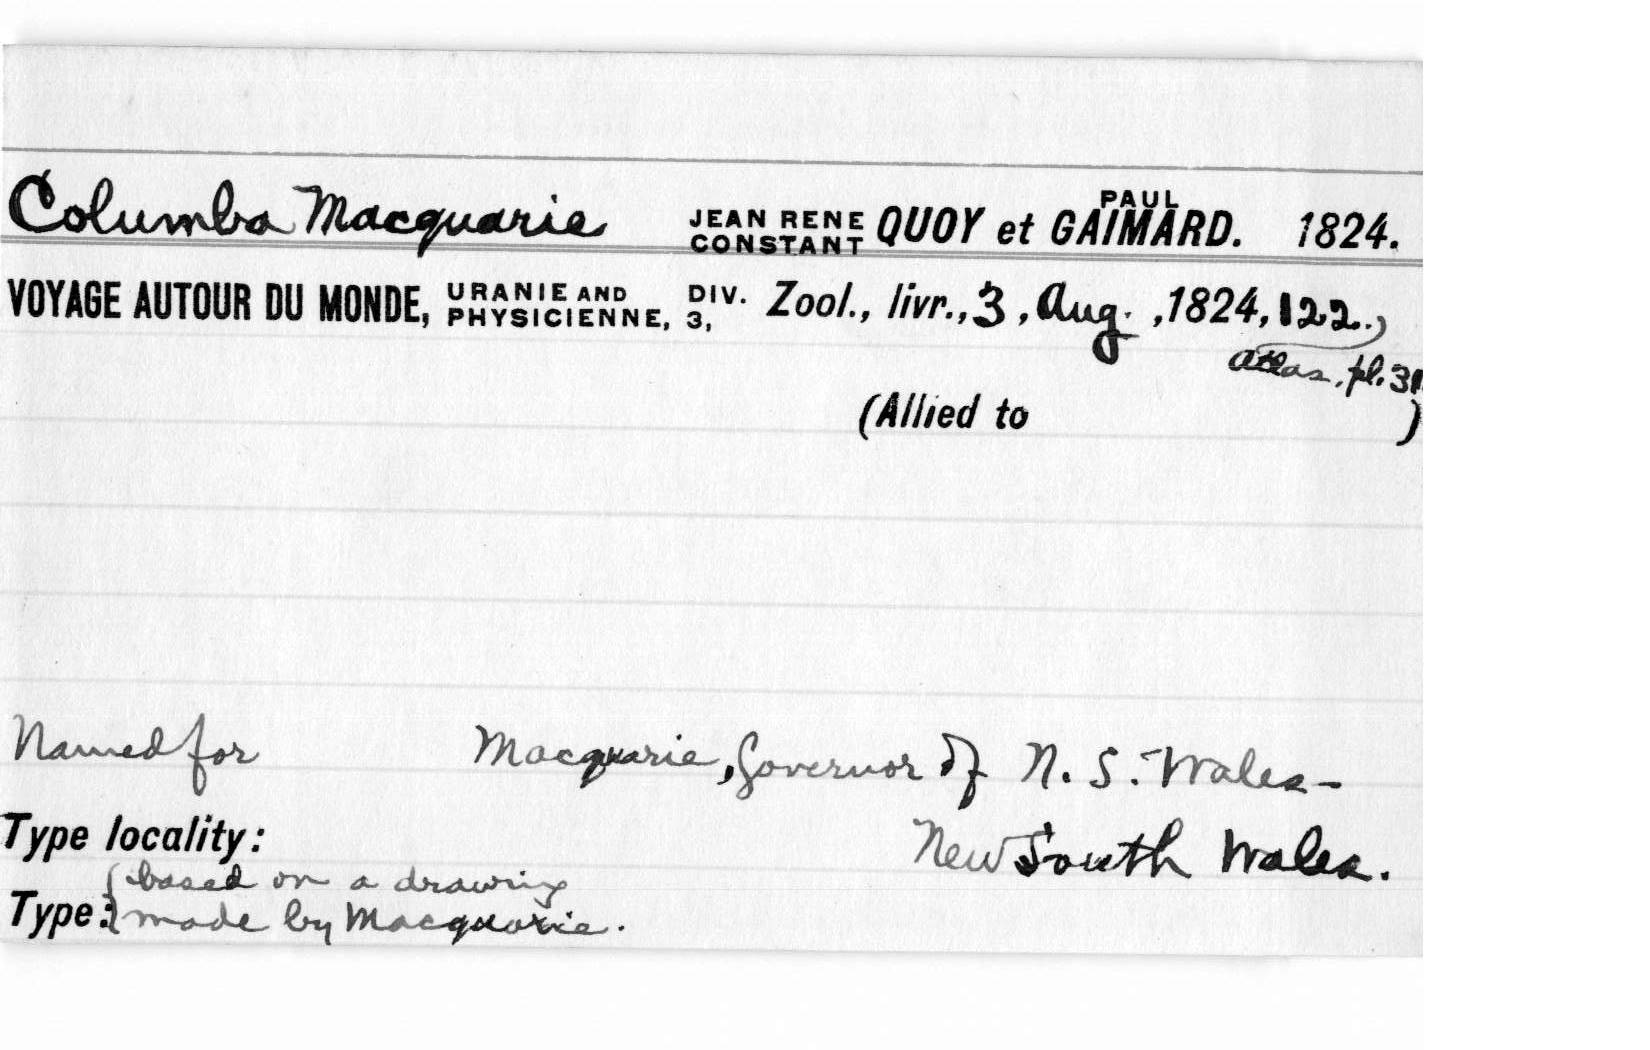 Columba Macquarie JEAN RENE CONSTANT QUOY et PAUL GAIMARD. 1824.
VOYAGE AUTOUR DU MONDE, URANIE AND PHYSICIENNE, DIV. 3, Zool., livr., 3, Aug. , 1824, 122.,
atlas, pl. 31
(Allied to )
Named for Macquarie, Governor of N. S. Wales–
Type locality: New South Wales.
Type: {based on a drawing
made by Macquarie.